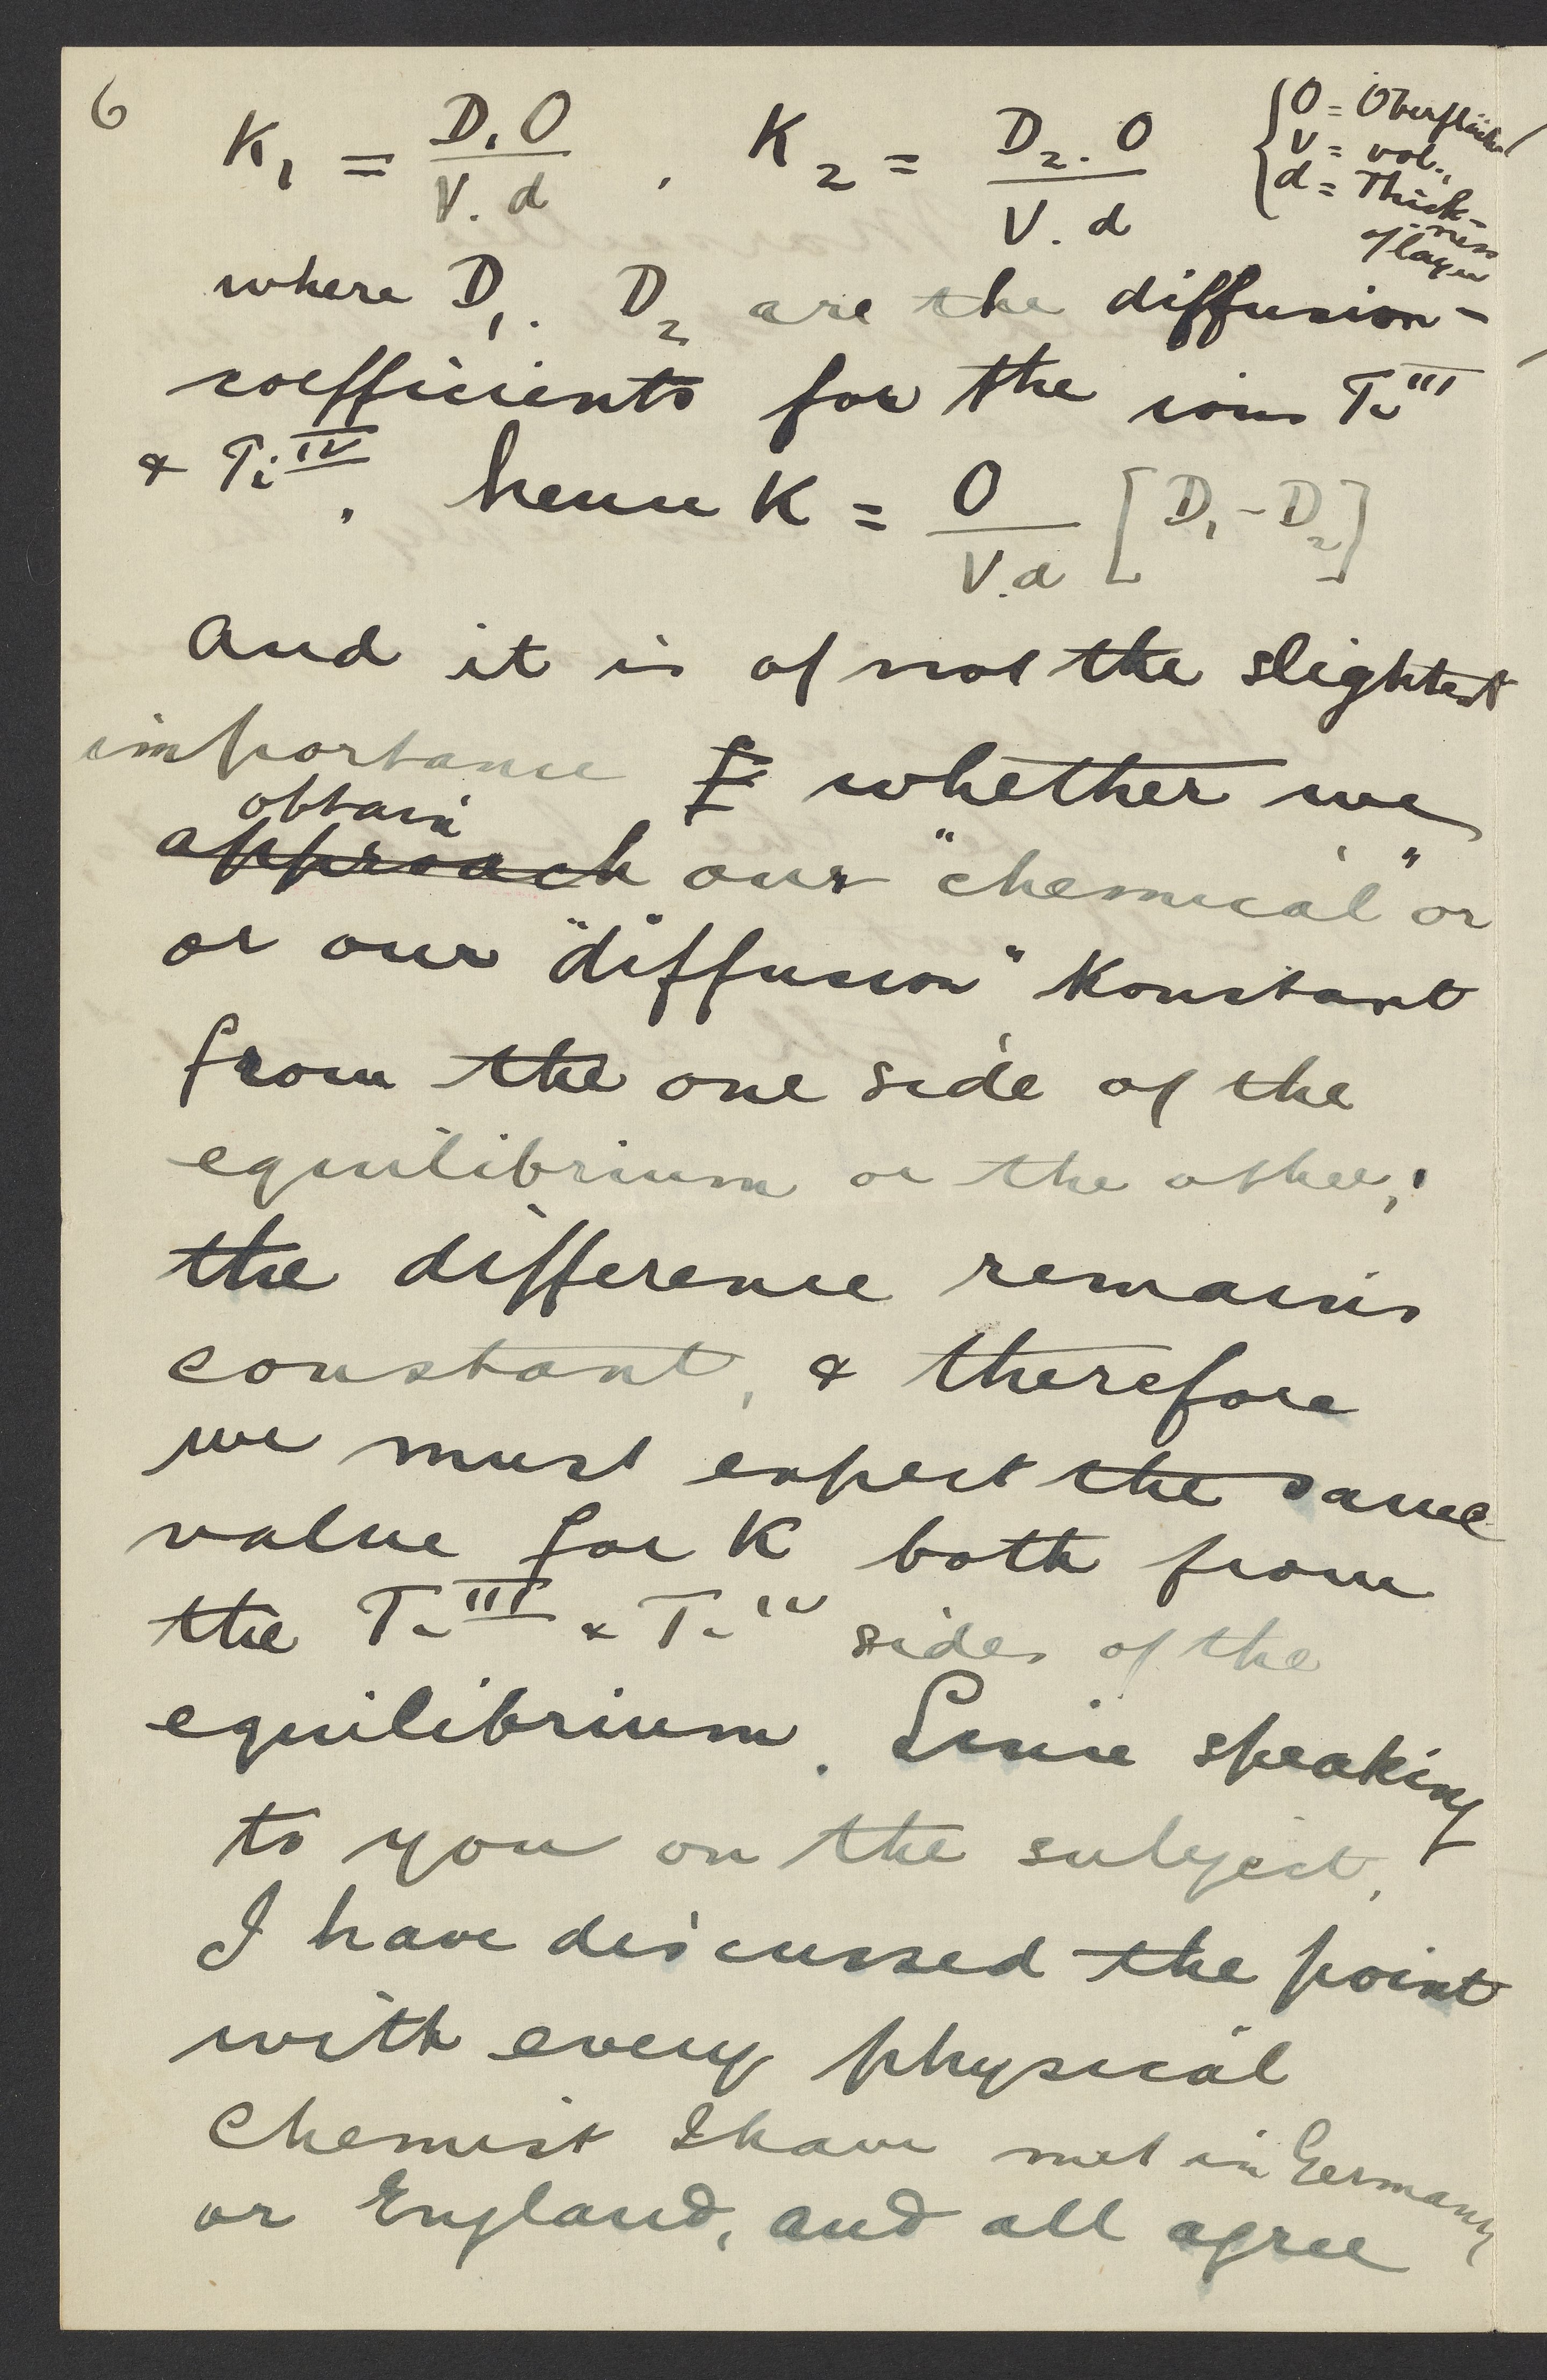 6
K₁ = D₁O / V.d , K₂ = D₂.O / V.d
{O = Oberfläche
V = vol.,
d = Thick-
ness
of layer
where D₁. D₂ are the diffusion-
coefficients for the ions Ti'''
& Ti^IV. hence K = O / V.d [D₁-D₂]
And it is of not the slightest
importance whether we
obtain
approach our "chemical" or
or our "diffusion" Konstant
from the one side of the
equilibrium or the other;
the difference remains
constant, & therefore
we must expect the same
value for K both from
the Ti^III & Ti^IV sides of the
equilibrium. Since speaking
to you on the subject,
I have discussed the point
with every physical
Chemist I have met in Germany
or England, and all agree